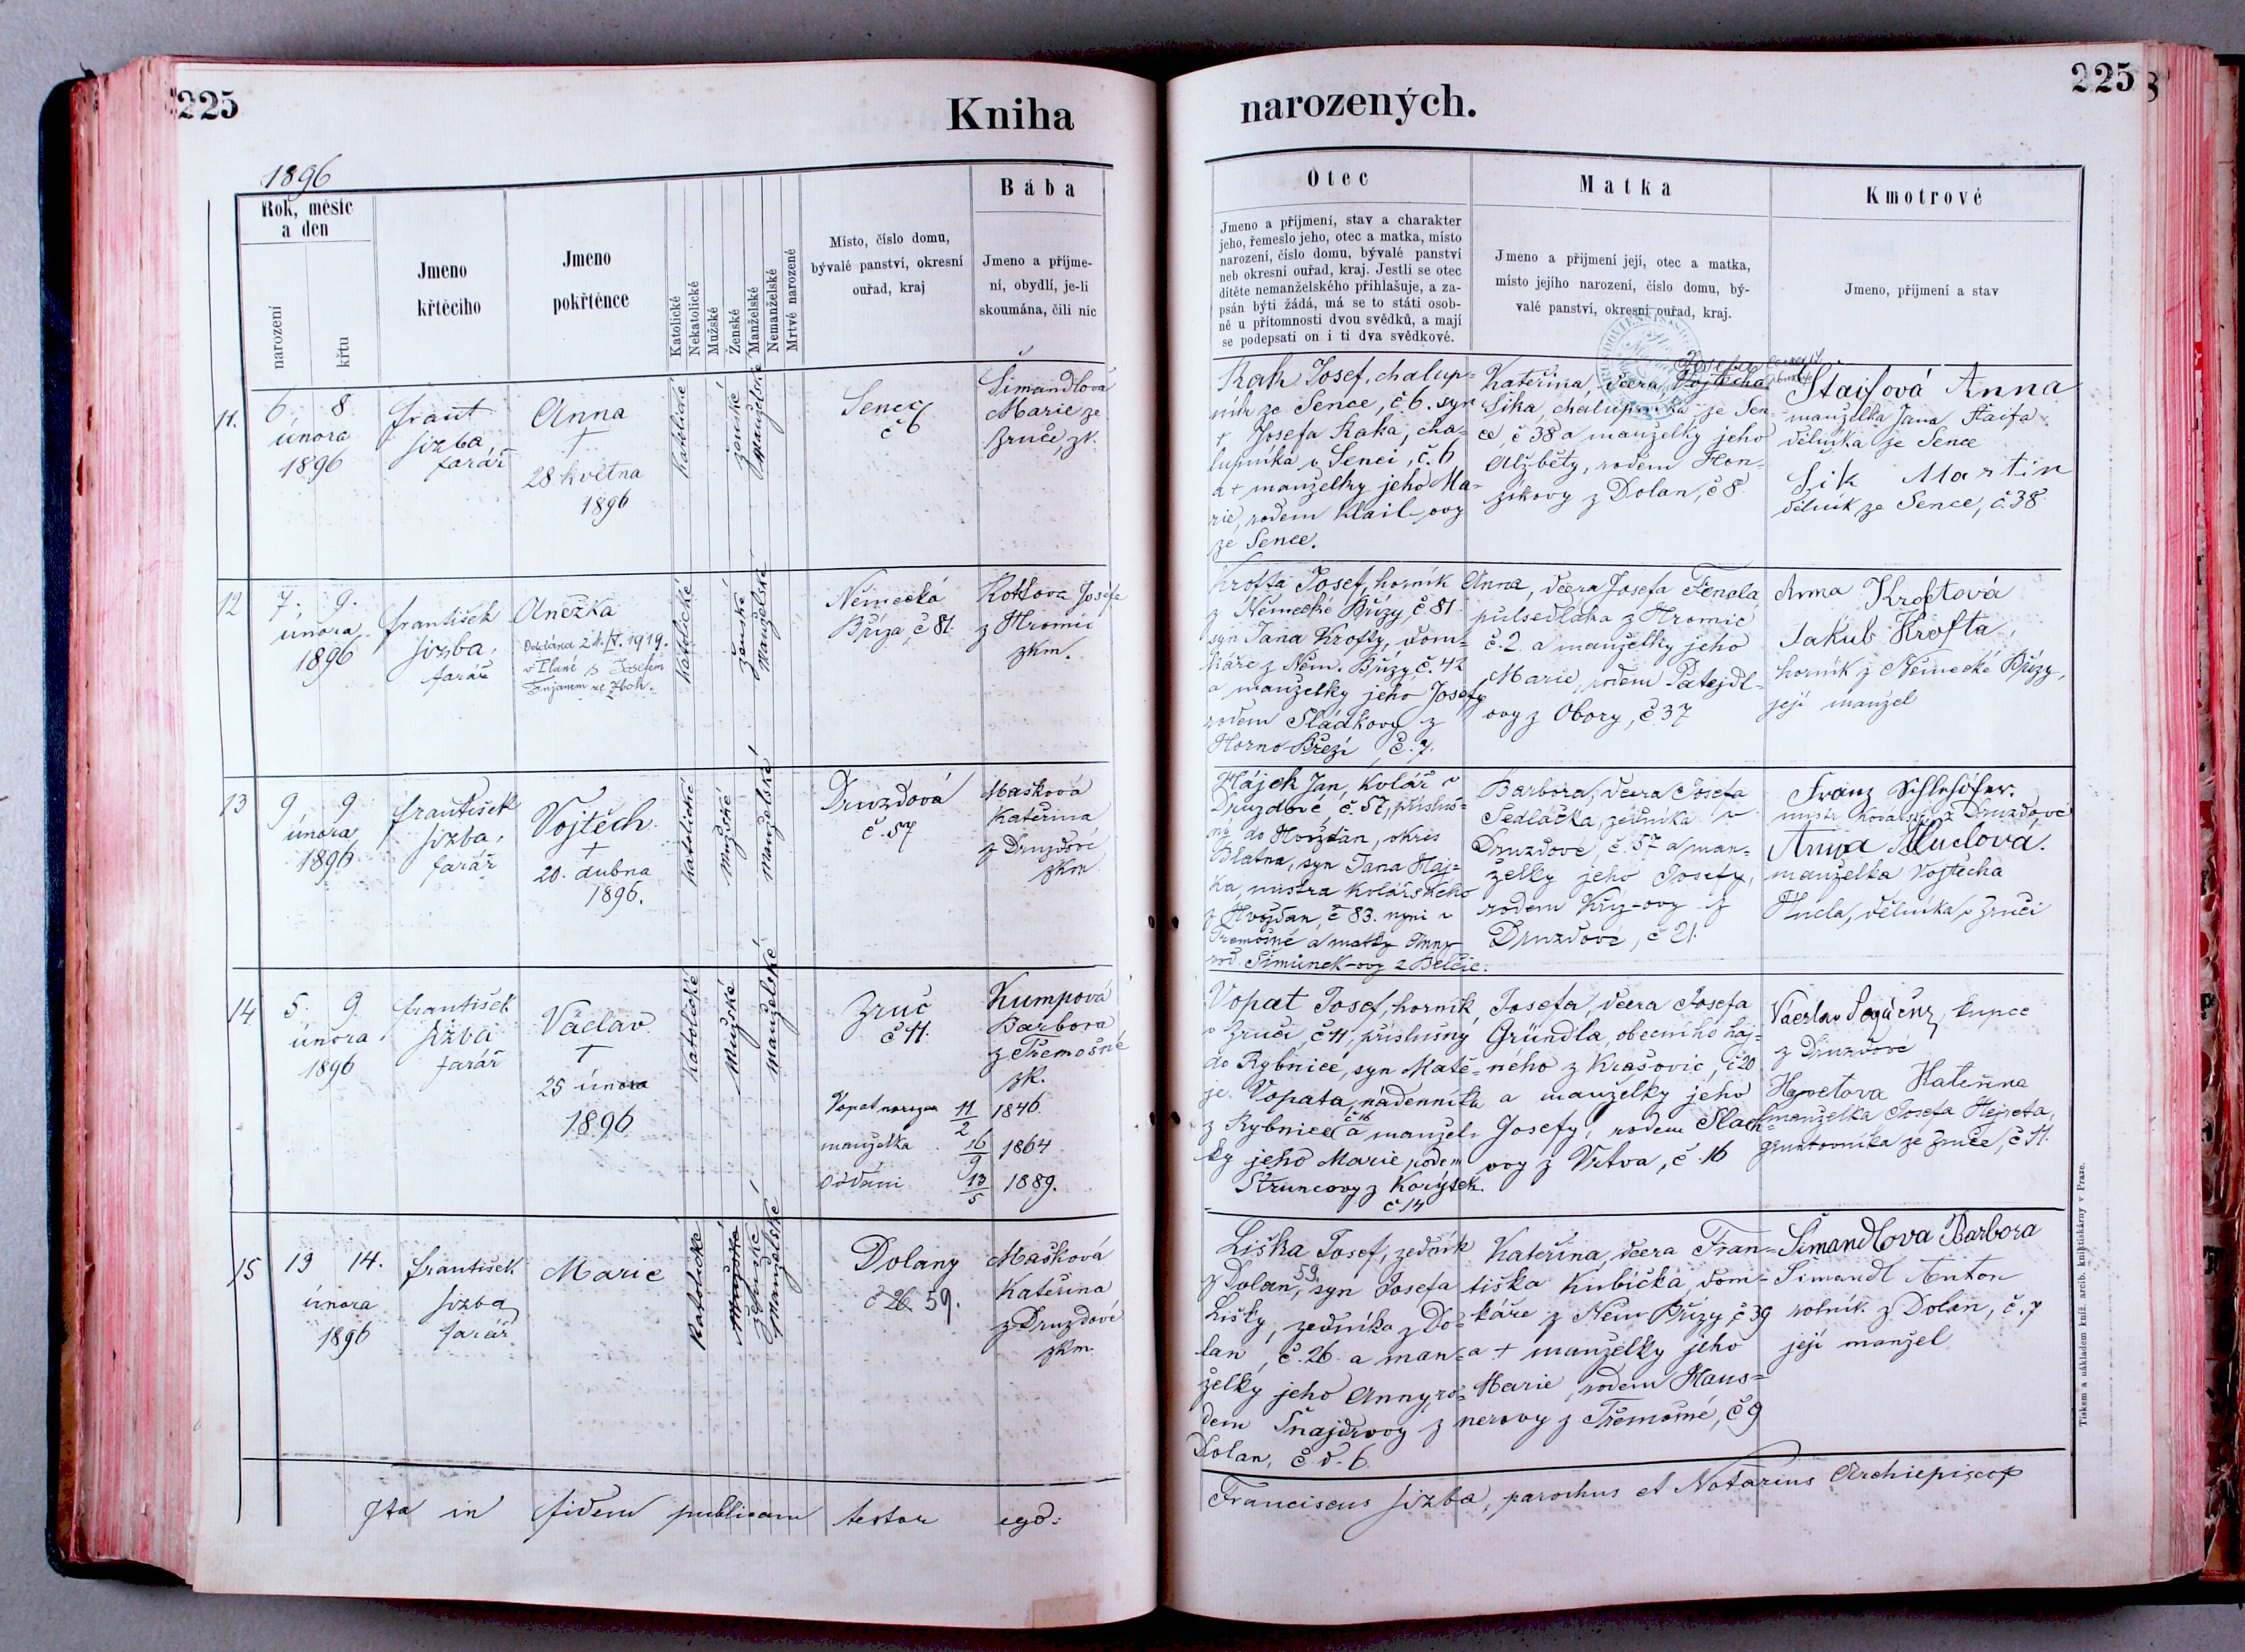 225
Kniha
1896
Rok, měsíc
a den
narození
křtu
Jmeno
křtěcího
Jmeno
pokřtěnce
Katolické
Nekatolické
Mužské
Ženské
Manželské
Nemanželské
Mrtvé narozené
Místo, číslo domu,
bývalé panství, okresní
ouřad, kraj
Bába
Jmeno a příjme-
ní, obydlí, je-li
skoumána, čili nic
11.
6. 8.
února
1896
Frant
Jizba,
farář
Anna
†
28 května
1896
katolické
ženské
manželské
Senec
č 6
Šimandlová
Marie ze
Zruče, zk.
12
7. 9.
února
1896
František
Jizba,
farář
Anežka
Oddána 24./V. 1919.
v Plané s Josefem
katolické
ženské
manželské
Německá
Bříza č 81.
Kottova Josefa
z Hromic
zkm.
13
9 9
února
1896
František
Jizba,
farář
Vojtěch.
†
20. dubna
1896.
katolické
mužské
manželské
Druzdová
č. 57
Mašková
Kateřina
z Druzdové
zkm
14
5. 9.
února
1896
František
Jizba
farář
Václav.
†
25 února
1896
katolické
mužské
manželské
Zruč
č 11.
Kumpová
Barbora
z Třemošné
zk.
Vopat narozen 11/2 1846
manželka 16/9 1864
oddáni 13/5 1889.
15
13 14.
února
1896
František
Jizba
farář
Marie
katolické
mužské
ženské
manželské
Dolany
č 26. 59.
Mašková
Kateřina
z Druzdové
zkm.
Ita in fidem publicam testor ego:
narozených.
225
Otec
Jmeno a příjmení, stav a charakter
jeho, řemeslo jeho, otec a matka, místo
narození, číslo domu, bývalé panství
neb okresní ouřad, kraj. Jestli se otec
dítěte nemanželského přihlašuje, a za-
psán býti žádá, má se to státi osob-
ně u přítomnosti dvou svědků, a mají
se podepsati on i ti dva svědkové.
Matka
Jmeno a příjmení její, otec a matka,
místo jejího narození, číslo domu, bý-
valé panství, okresní ouřad, kraj.
Kmotrové
Jmeno, příjmení a stav
Rak Josef, chalup-
ník ze Sence, č. 6. syn
† Josefa Raka, cha-
lupníka v Senci, č. 6
a † manželky jeho Ma-
rie, rodem Klail-ovy
ze Sence.
Josefa
Kateřina, dcera Vojtěcha
Šika, chalupníka ze Sen-
ce, č 38 a manželky jeho
Alžběty, rodem Hon-
zikovy z Dolan, č 8.
Staifová Anna
manželka Jana Staifa
dělníka ze Sence
Šik Martin
dělník ze Sence, č. 38
Krofta Josef, horník
z Německé Břízy, č 81.
syn Jana Krofty, dom-
káře z Něm. Břízy č. 42
a manželky jeho Josefy
rodem Sládkovy z
Horno-Březí č. 7.
Anna, dcera Josefa Fenala
půlsedláka z Hromic
č. 2. a manželky jeho
Marie, rodem Patejdl-
ovy z Obory, č. 37
Anna Kroftová
Jakub Krofta,
horník z Německé Břízy,
její manžel
Hájek Jan, kolář v
Druzdové, č. 57, přísluš-
ný do Hvožďan, okres
Blatna, syn Jana Háj-
ka, mistra kolářského
z Hvožďan, č 83. nyní v
Třemošné a matky Anny
rod. Šimůnek-ovy z Bělčic.
Barbora, dcera Josefa
Sedláčka, zedníka v
Druzdové, č. 57 a man-
želky jeho Josefy,
rodem Kříž-ovy z
Druzdové, č 21.
Franz Schlehöfer.
mistr kovářský z Druzdové
Anna Huclova.
manželka Vojtěcha
Hucla, dělníka v Zruči
Vopat Josef, horník
v Zruči, č 11, příslušný
do Rybnice, syn Matě-
je Vopata, nádenníka
č 16
z Rybnice a manžel-
ky jeho Marie, rodem
Struncovy z Korýtek.
č 14
Josefa, dcera Josefa
Gründla, obecního háj-
ného z Krašovic, č 20
a manželky jeho
Josefy, rodem Slach-
ovy z Vrtva, č. 16
kupce
z Druzdové
Kateřina
manželka Josefa Hejreta,
gruntovníka ze Zruče, č 11.
Liška Josef, zedník
59
z Dolan, syn Josefa
Lišky, zedníka z Do-
lan, č. 26. a man-
želky jeho Anny, ro-
dem Šnajdrovy z
Dolan, č. d. 6.
Kateřina, dcera Fran-
tiška Kubička, dom-
káře z Něm Břízy, č 39
a † manželky jeho
Marie, rodem Haus-
nerovy z Třemošné, č 9
Šimandlova Barbora
Šimandl Anton
rolník z Dolan, č. 7
její manžel
Franciscus Jizba, parochus et Notarius Archiepiscop
Tiskem a nákladem kníž. arcib. knihtiskárny v Praze.